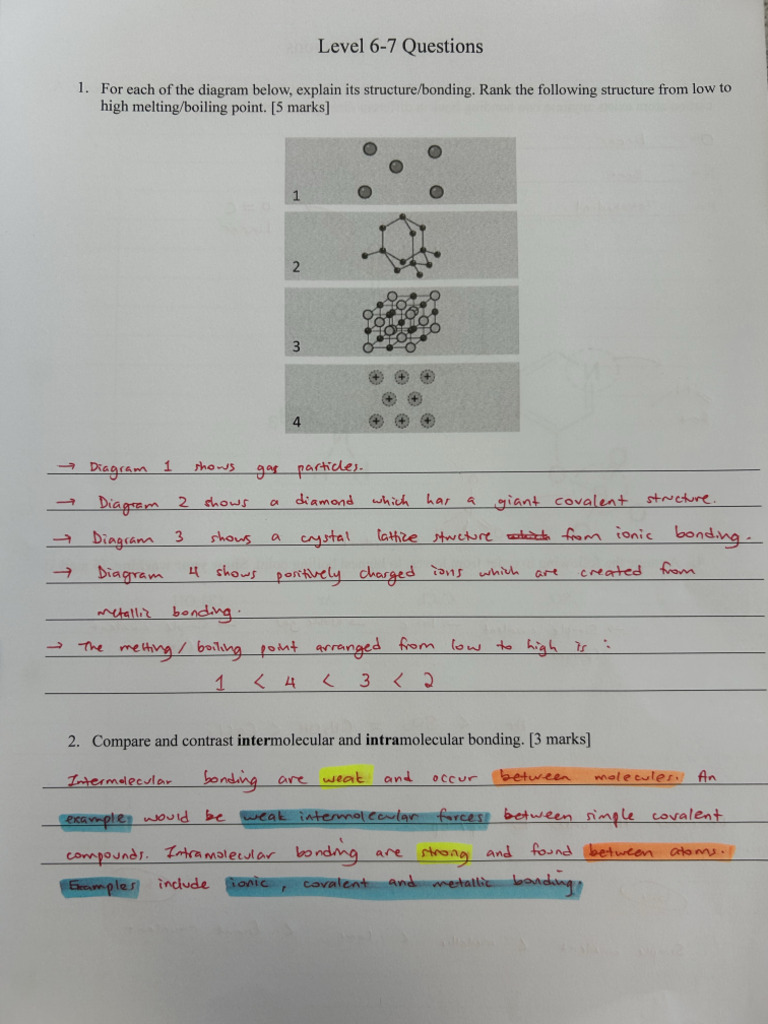 Level 6-7 Questions
1. For each of the diagram below, explain its structure/bonding. Rank the following structure from low to
high melting/boiling point. [5 marks]
1
2
3
4
→ Diagram 1 shows gas particles.
→ Diagram 2 shows a diamond which has a giant covalent structure.
→ Diagram 3 shows a crystal lattice structure from ionic bonding.
→ Diagram 4 shows positively charged ions which are created from
metallic bonding.
→ The melting / boiling point arranged from low to high is :
1 < 4 < 3 < 2
2. Compare and contrast intermolecular and intramolecular bonding. [3 marks]
Intermolecular bonding are weak and occur between molecules. An
example would be weak intermolecular forces between simple covalent
compounds. Intramolecular bonding are strong and found between atoms.
Examples include ionic, covalent and metallic bonding.